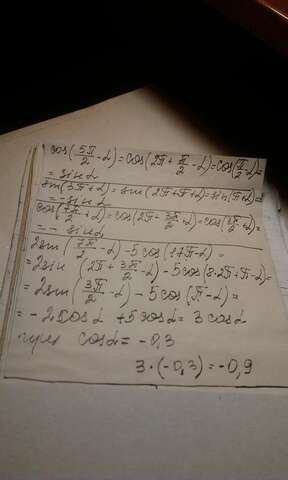 cos(5π/2 - α) = cos(2π + π/2 - α) = cos(π/2 - α) =
= sin α
sin(3π + α) = sin(2π + π + α) = sin(π + α) =
= - sin α
cos(7π/2 + α) = cos(2π + 3π/2 + α) = cos(3π/2 + α) =
= - sin α
2sin(7π/2 - α) - 5cos(17π - α) =
= 2sin(2π + 3π/2 - α) - 5cos(8·2π + π - α) =
= 2sin(3π/2 - α) - 5cos(π - α) =
= - 2cos α + 5cos α = 3cos α
при cos α = -0,3
3·(-0,3) = -0,9